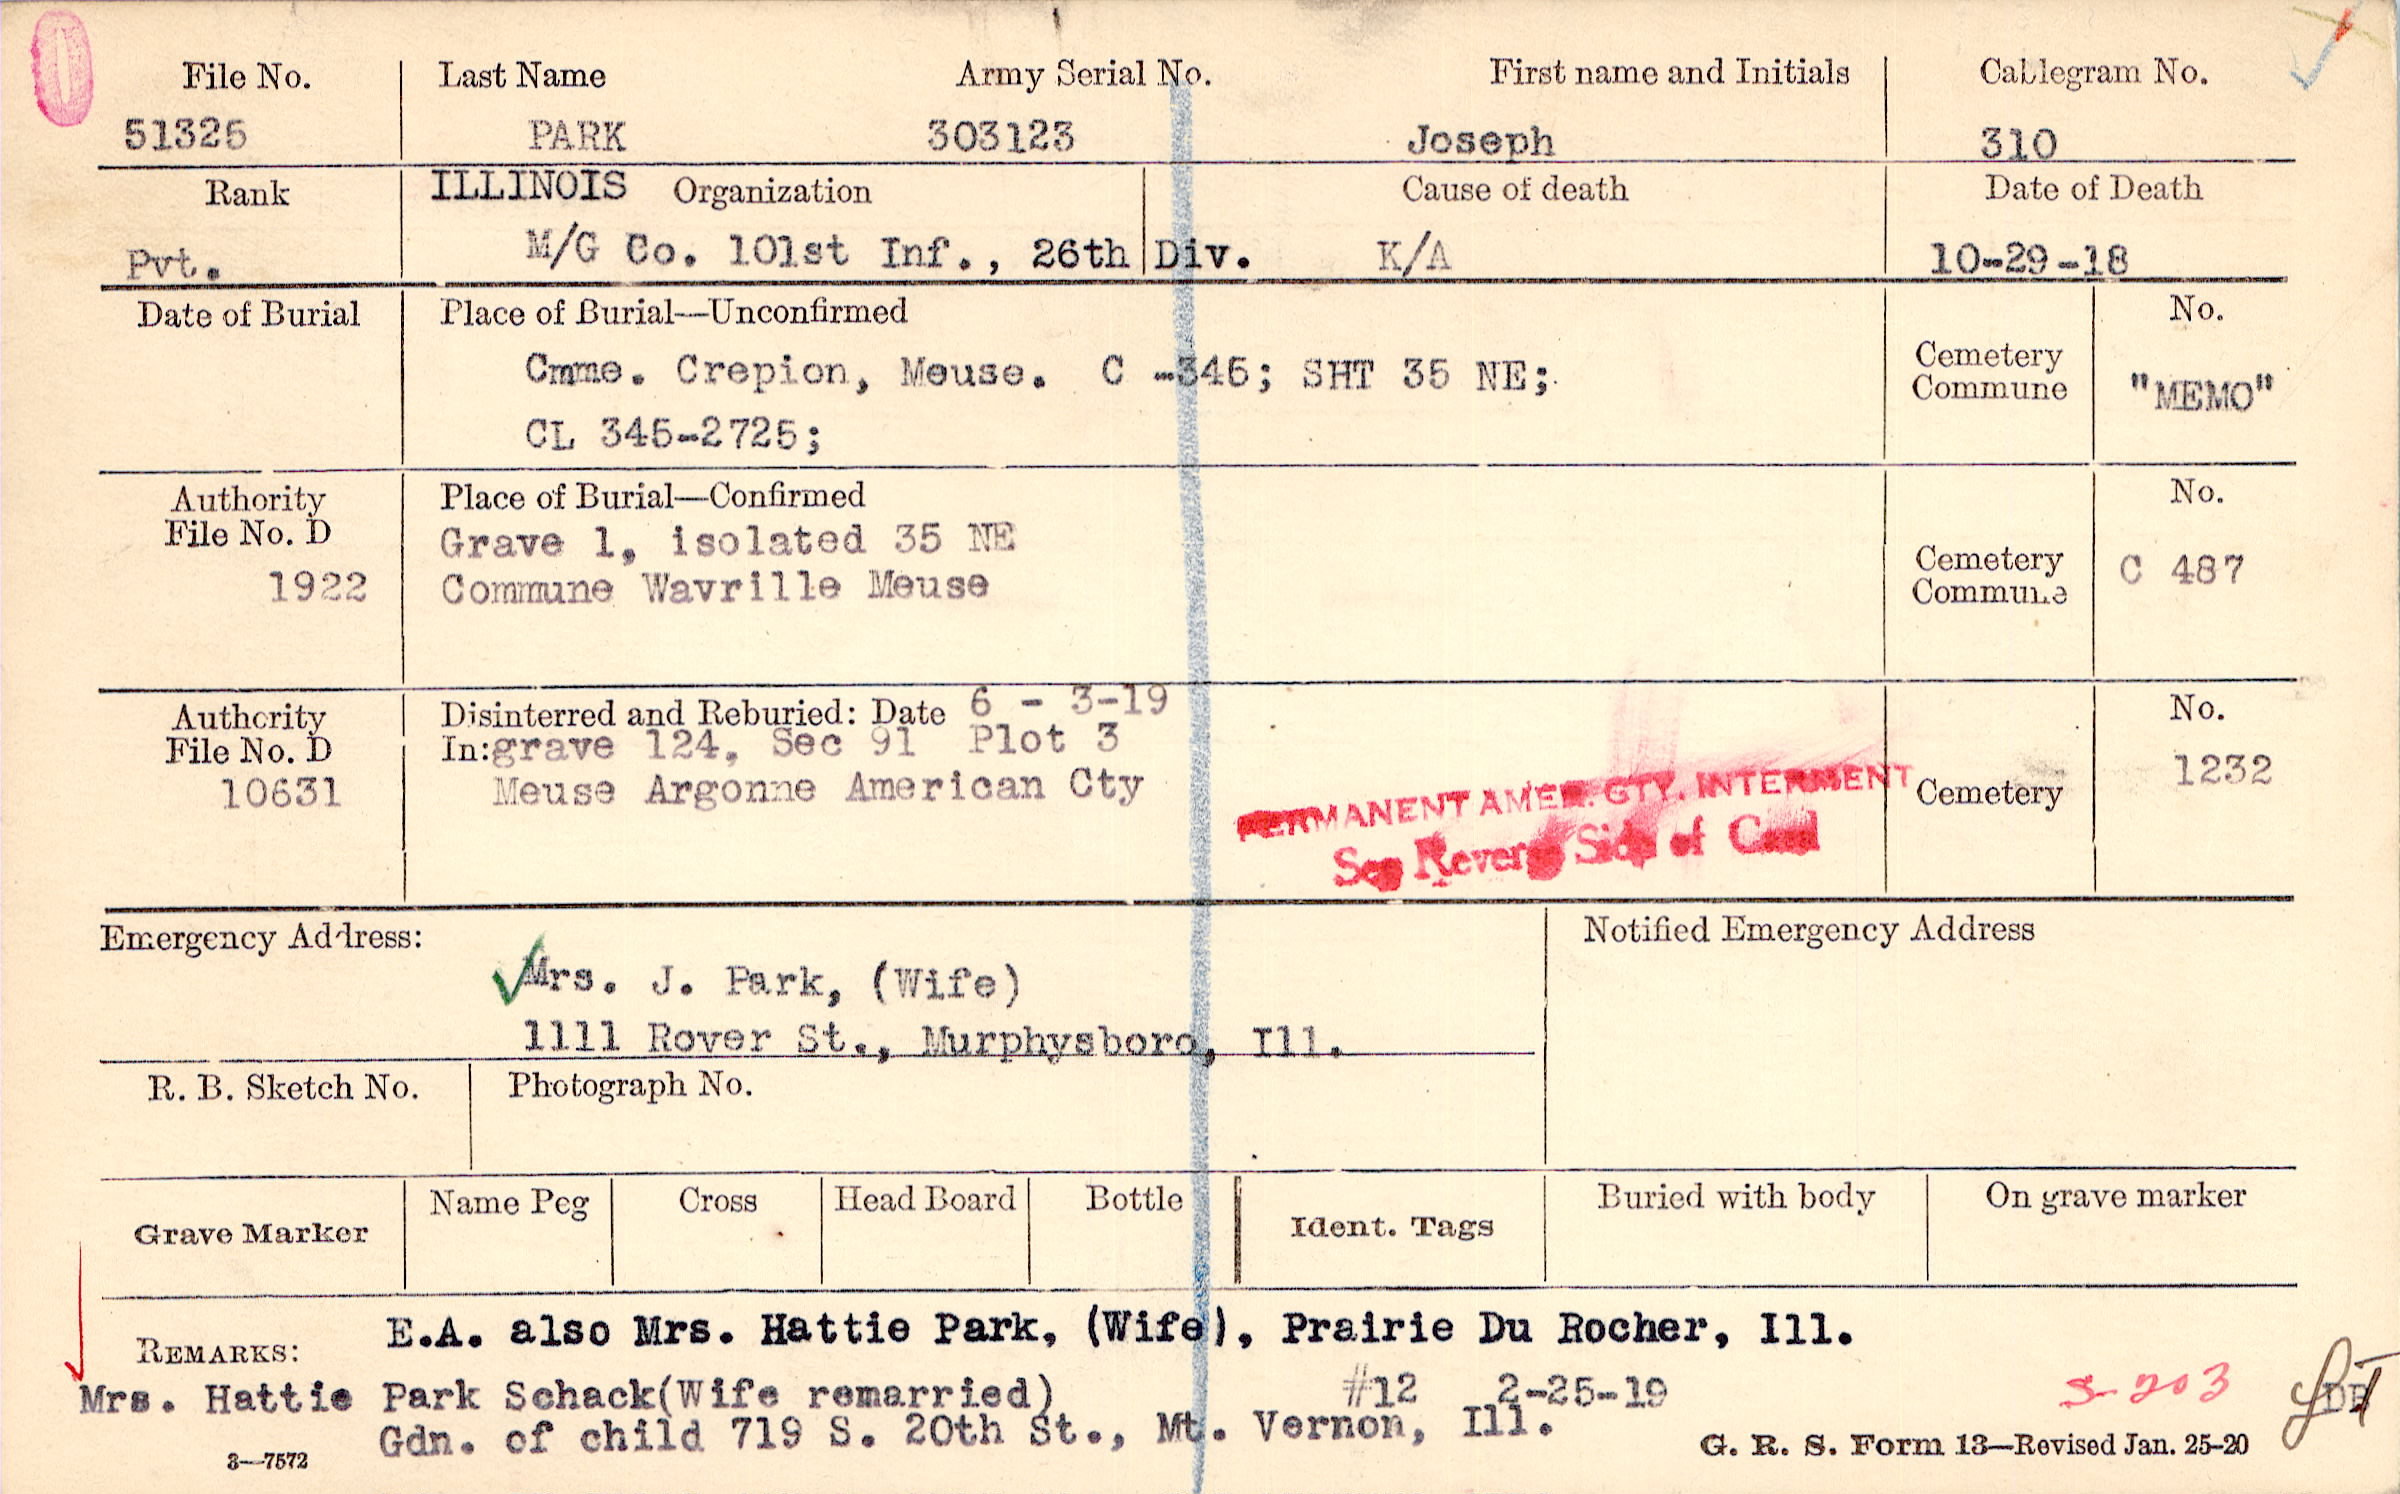 File No. Last Name Army Serial No. First name and Initials Cablegram No.
51325 PARK 303123 Joseph 310
Rank ILLINOIS Organization Cause of death Date of Death
Pvt. M/G Co. 101st Inf., 26th Div. K/A 10-29-18
Date of Burial Place of Burial—Unconfirmed No.
Cmme. Crepion, Meuse. C -345; SHT 35 NE;
Cemetery
Commune "MEMO"
CL 345-2725;
Authority Place of Burial—Confirmed No.
File No. D Grave 1, isolated 35 NE
1922 Commune Wavrille Meuse
Cemetery
Commune C 487
Authority Disinterred and Reburied: Date 6 - 3-19 No.
File No. D In: grave 124, Sec 91 Plot 3
10631 Meuse Argonne American Cty Cemetery 1232
PERMANENT AMER. CTY. INTERMENT
See Reverse Side of Card
Emergency Address: Notified Emergency Address
Mrs. J. Park, (Wife)
1111 Rover St., Murphysboro, Ill.
R. B. Sketch No. Photograph No.
Grave Marker Name Peg Cross Head Board Bottle Ident. Tags Buried with body On grave marker
REMARKS: E.A. also Mrs. Hattie Park, (Wife), Prairie Du Rocher, Ill.
Mrs. Hattie Park Schack(Wife remarried) #12 2-25-19 S-203
Gdn. of child 719 S. 20th St., Mt. Vernon, Ill.
3—7572 G. R. S. Form 13—Revised Jan. 25-20